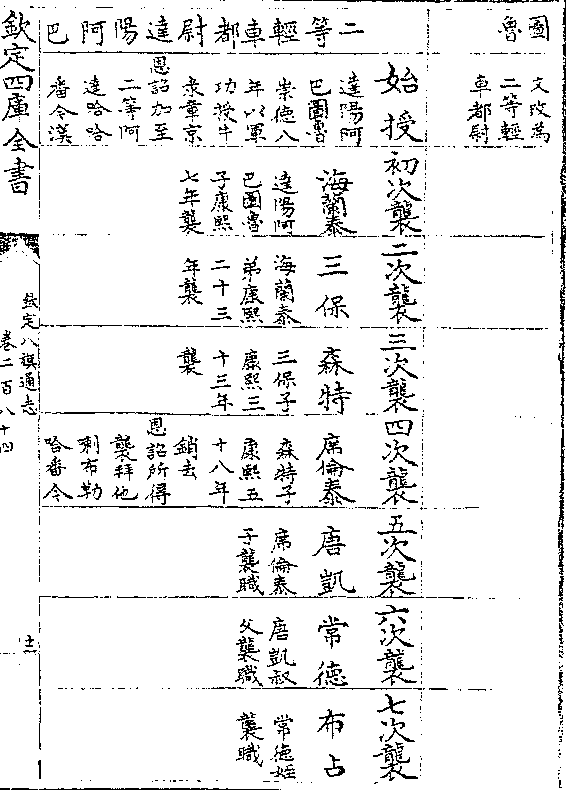 圖魯
文改爲
二等輕
車都尉
二等輕車都尉達陽阿巴
始授
達陽阿
巴圖魯
崇德八
年以軍
功授牛
彔章京
恩詔加至
二等阿
達哈哈
番今漢
初次襲
海蘭泰
達陽阿
巴圖魯
子康熙
七年襲
二次襲
三保
海蘭泰
弟康熙
二十三
年襲
三次襲
森特
三保子
康熙三
十三年
襲
四次襲
席倫泰
森特子
康熙五
十八年
銷去
恩詔所得
襲拜他
剌布勒
哈番今
五次襲
唐凱
席倫泰
子襲職
六次襲
常德
唐凱叔
父襲職
七次襲
布占
常德姪
襲職
欽定四庫全書
欽定八旗通志
卷二百八十四